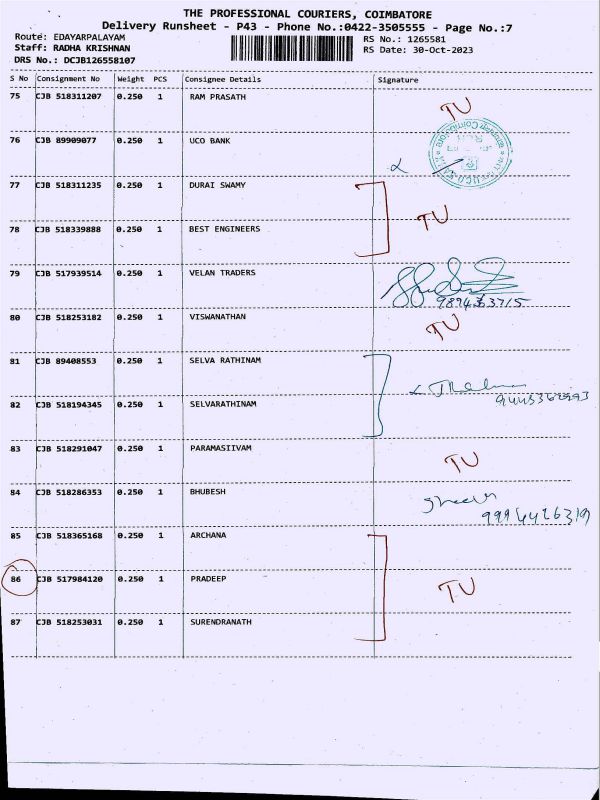 THE PROFESSIONAL COURIERS, COIMBATORE
Delivery Runsheet - P43 - Phone No.:0422-3505555 - Page No.:7
Route: EDAYARPALAYAM RS No.: 1265581
Staff: RADHA KRISHNAN RS Date: 30-Oct-2023
DRS No.: DCJB126558107
S No Consignment No Weight PCS Consignee Details Signature
75 CJB 518311207 0.250 1 RAM PRASATH TU
76 CJB 89909077 0.250 1 UCO BANK
77 CJB 518311235 0.250 1 DURAI SWAMY
TU
78 CJB 518339888 0.250 1 BEST ENGINEERS
79 CJB 517939514 0.250 1 VELAN TRADERS
80 CJB 518253182 0.250 1 VISWANATHAN TU
81 CJB 89408553 0.250 1 SELVA RATHINAM
82 CJB 518194345 0.250 1 SELVARATHINAM
83 CJB 518291047 0.250 1 PARAMASIIVAM TU
84 CJB 518286353 0.250 1 BHUBESH
9994426319
85 CJB 518365168 0.250 1 ARCHANA
86 CJB 517984120 0.250 1 PRADEEP TU
87 CJB 518253031 0.250 1 SURENDRANATH